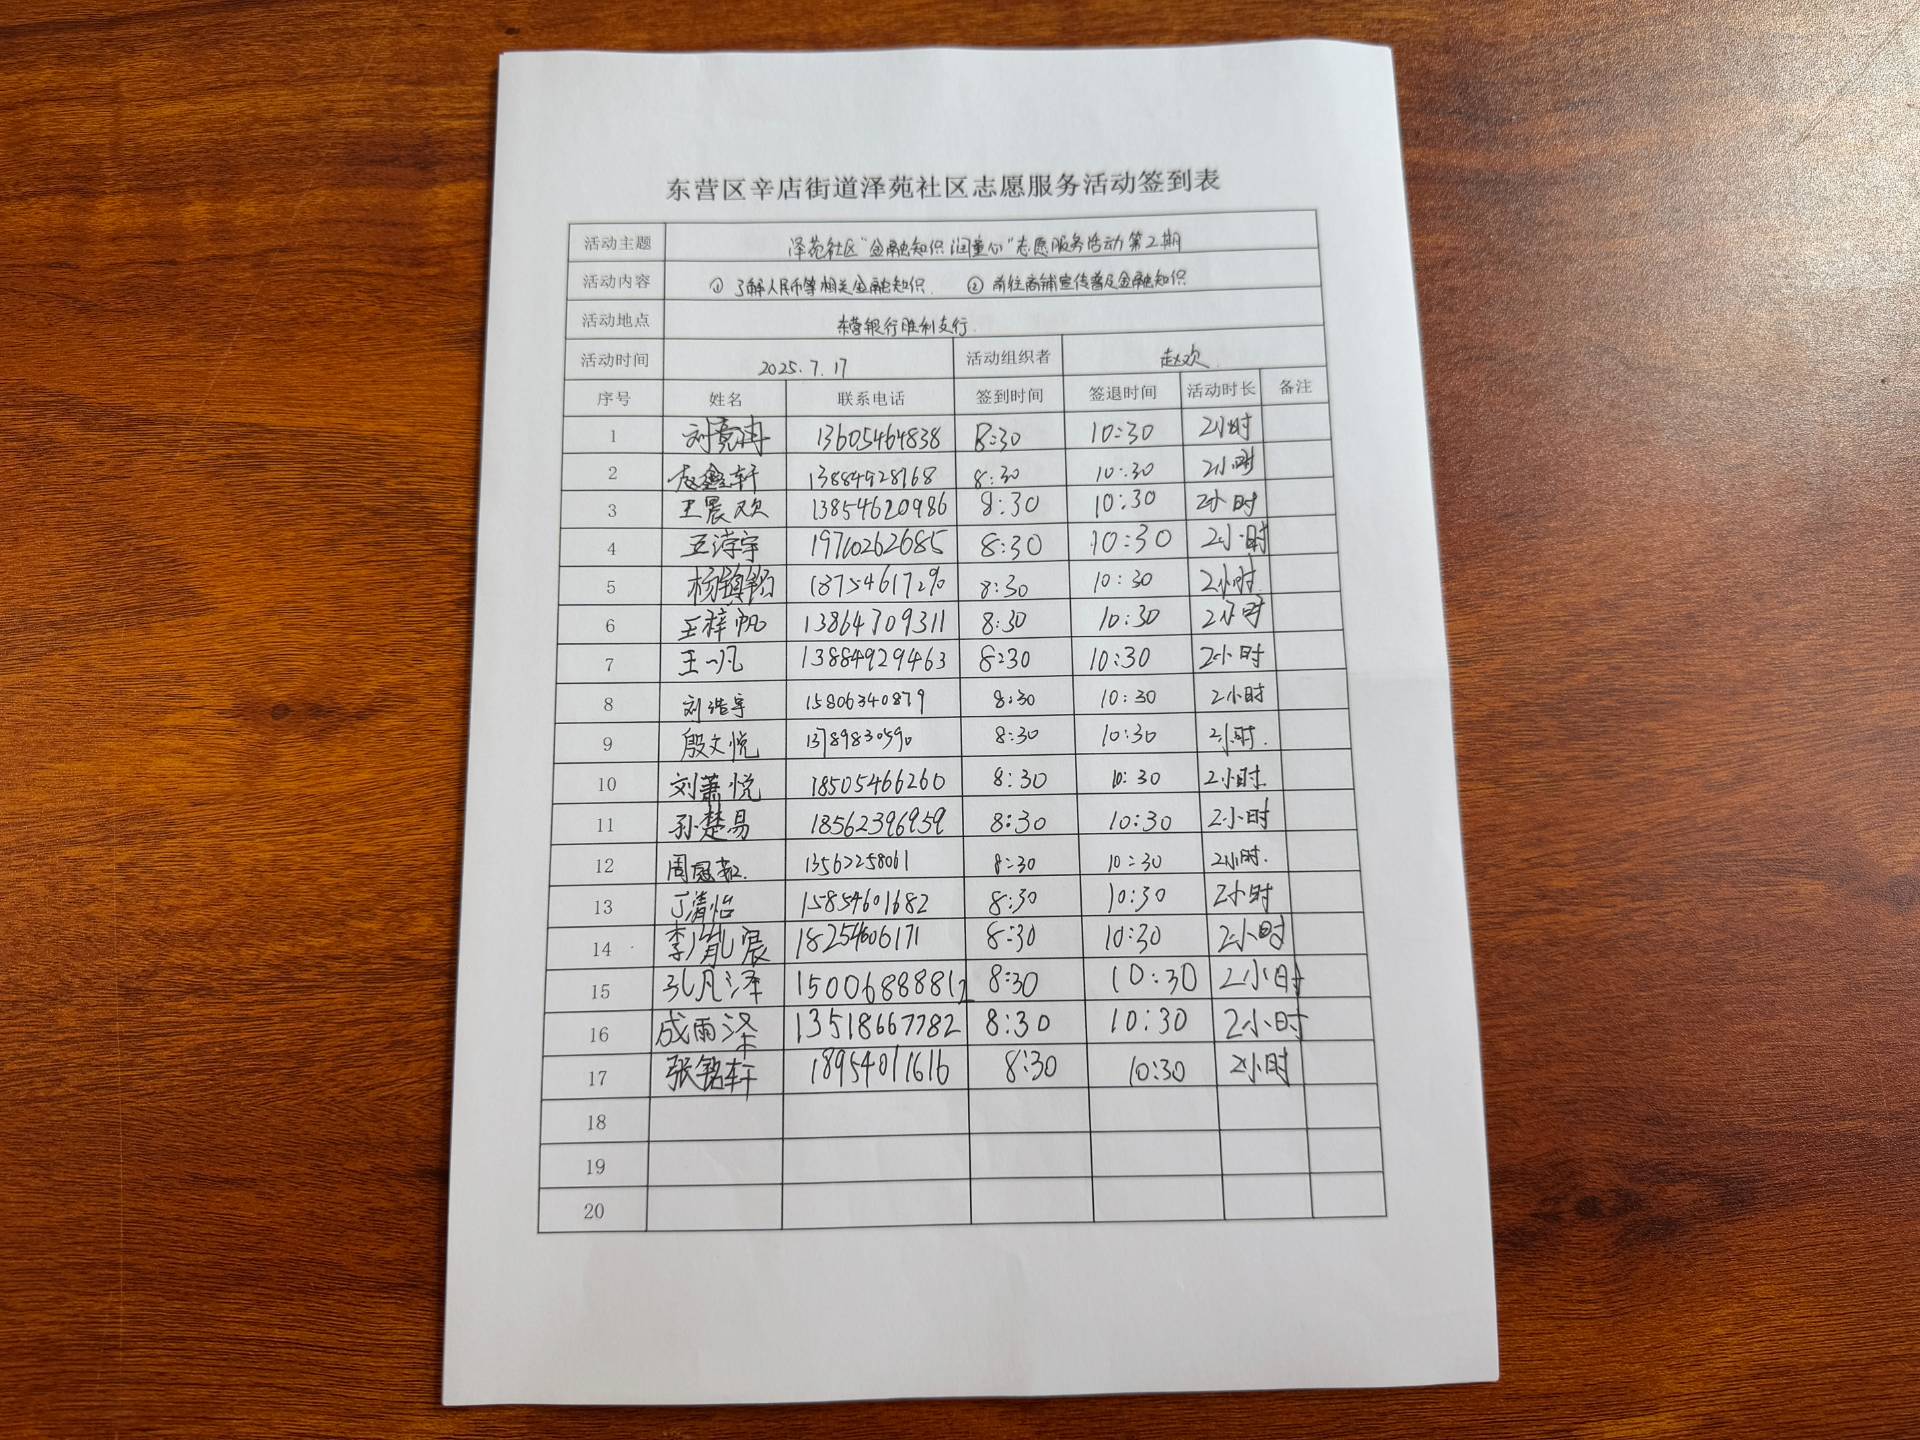 东营区辛店街道泽苑社区志愿服务活动签到表
活动主题 泽苑社区“金融知识润童心”志愿服务活动第2期
活动内容 ① 了解人民币等相关金融知识. ② 前往商铺宣传普及金融知识
活动地点 东营银行胜利支行.
活动时间 2025.7.17 活动组织者 赵欢
序号 姓名 联系电话 签到时间 签退时间 活动时长 备注
1 13605464838 8:30 10:30 2小时
2 赵鑫轩 13884928768 8:30 10:30 2小时
3 王晨欢 13854620986 8:30 10:30 2小时
4 8:30 10:30 2小时
5 8:30 10:30 2小时
6 王梓帆 13864709311 8:30 10:30 2小时
7 王一凡 13884929463 8:30 10:30 2小时
8 刘浩宇 15806340879 8:30 10:30 2小时
9 殷文悦 13789830590 8:30 10:30 2小时.
10 刘萧悦 18505466260 8:30 10:30 2小时.
11 孙楚易 18562396959 8:30 10:30 2小时
12 13562258061 8:30 10:30 2小时.
13 丁清怡 15854601682 8:30 10:30 2小时
14 18254606171 8:30 10:30 2小时
15 孔凡泽 15006888812 8:30 10:30 2小时
16 成雨泽 13518667782 8:30 10:30 2小时
17 张铭轩 18954011616 8:30 10:30 2小时
18
19
20